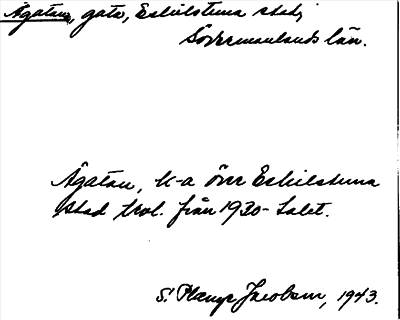 Ågatan, gata, Eskilstuna stad,
Södermanlands län.
Ågatan, k-a över Eskilstuna
stad trol. från 1930-talet.
S. Jacobsen, 1943.